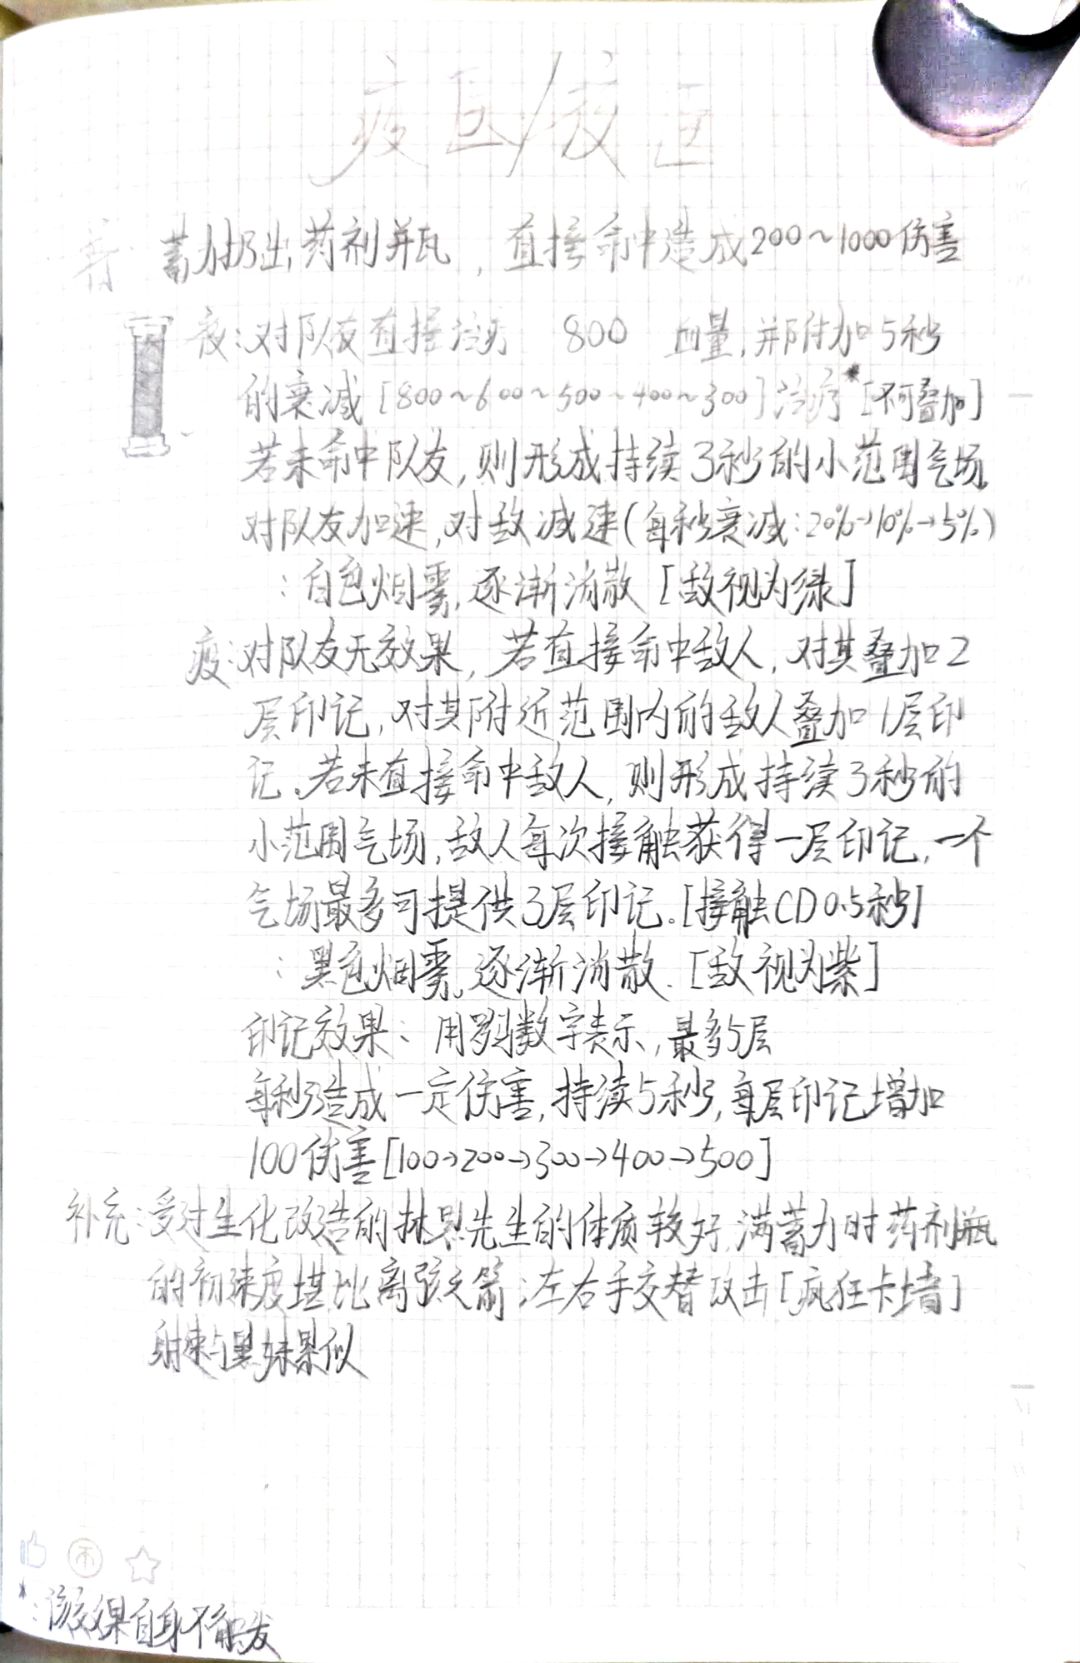 疫医/夜医
蓄力扔出药剂瓶，直接命中造成200~1000伤害
夜:对队友直接治疗 800 血量,并附加5秒
的衰减[800~600~500~400~300]治疗*[不可叠加]
若未命中队友,则形成持续3秒的小范围气场,
对队友加速,对敌减速(每秒衰减:20%→10%→5%)
:白色烟雾,逐渐消散[敌视为绿]
疫:对队友无效果,若直接命中敌人,对其叠加2
层印记,对其附近范围内的敌人叠加1层印
记。若未直接命中敌人,则形成持续3秒的
小范围气场,敌人每次接触获得一层印记,一个
气场最多可提供3层印记.[接触CD0.5秒]
:黑色烟雾,逐渐消散.[敌视为紫]
印记效果:用罗马数字表示,最多5层
每秒造成一定伤害,持续5秒,每层印记增加
100伤害[100→200→300→400→500]
补充:受过生化改造的林恩先生的体质较好,满蓄力时药剂瓶
的初速度堪比离弦之箭;左右手交替攻击[疯狂卡墙]
射速与黑妹累似
*:该效果自身不触发